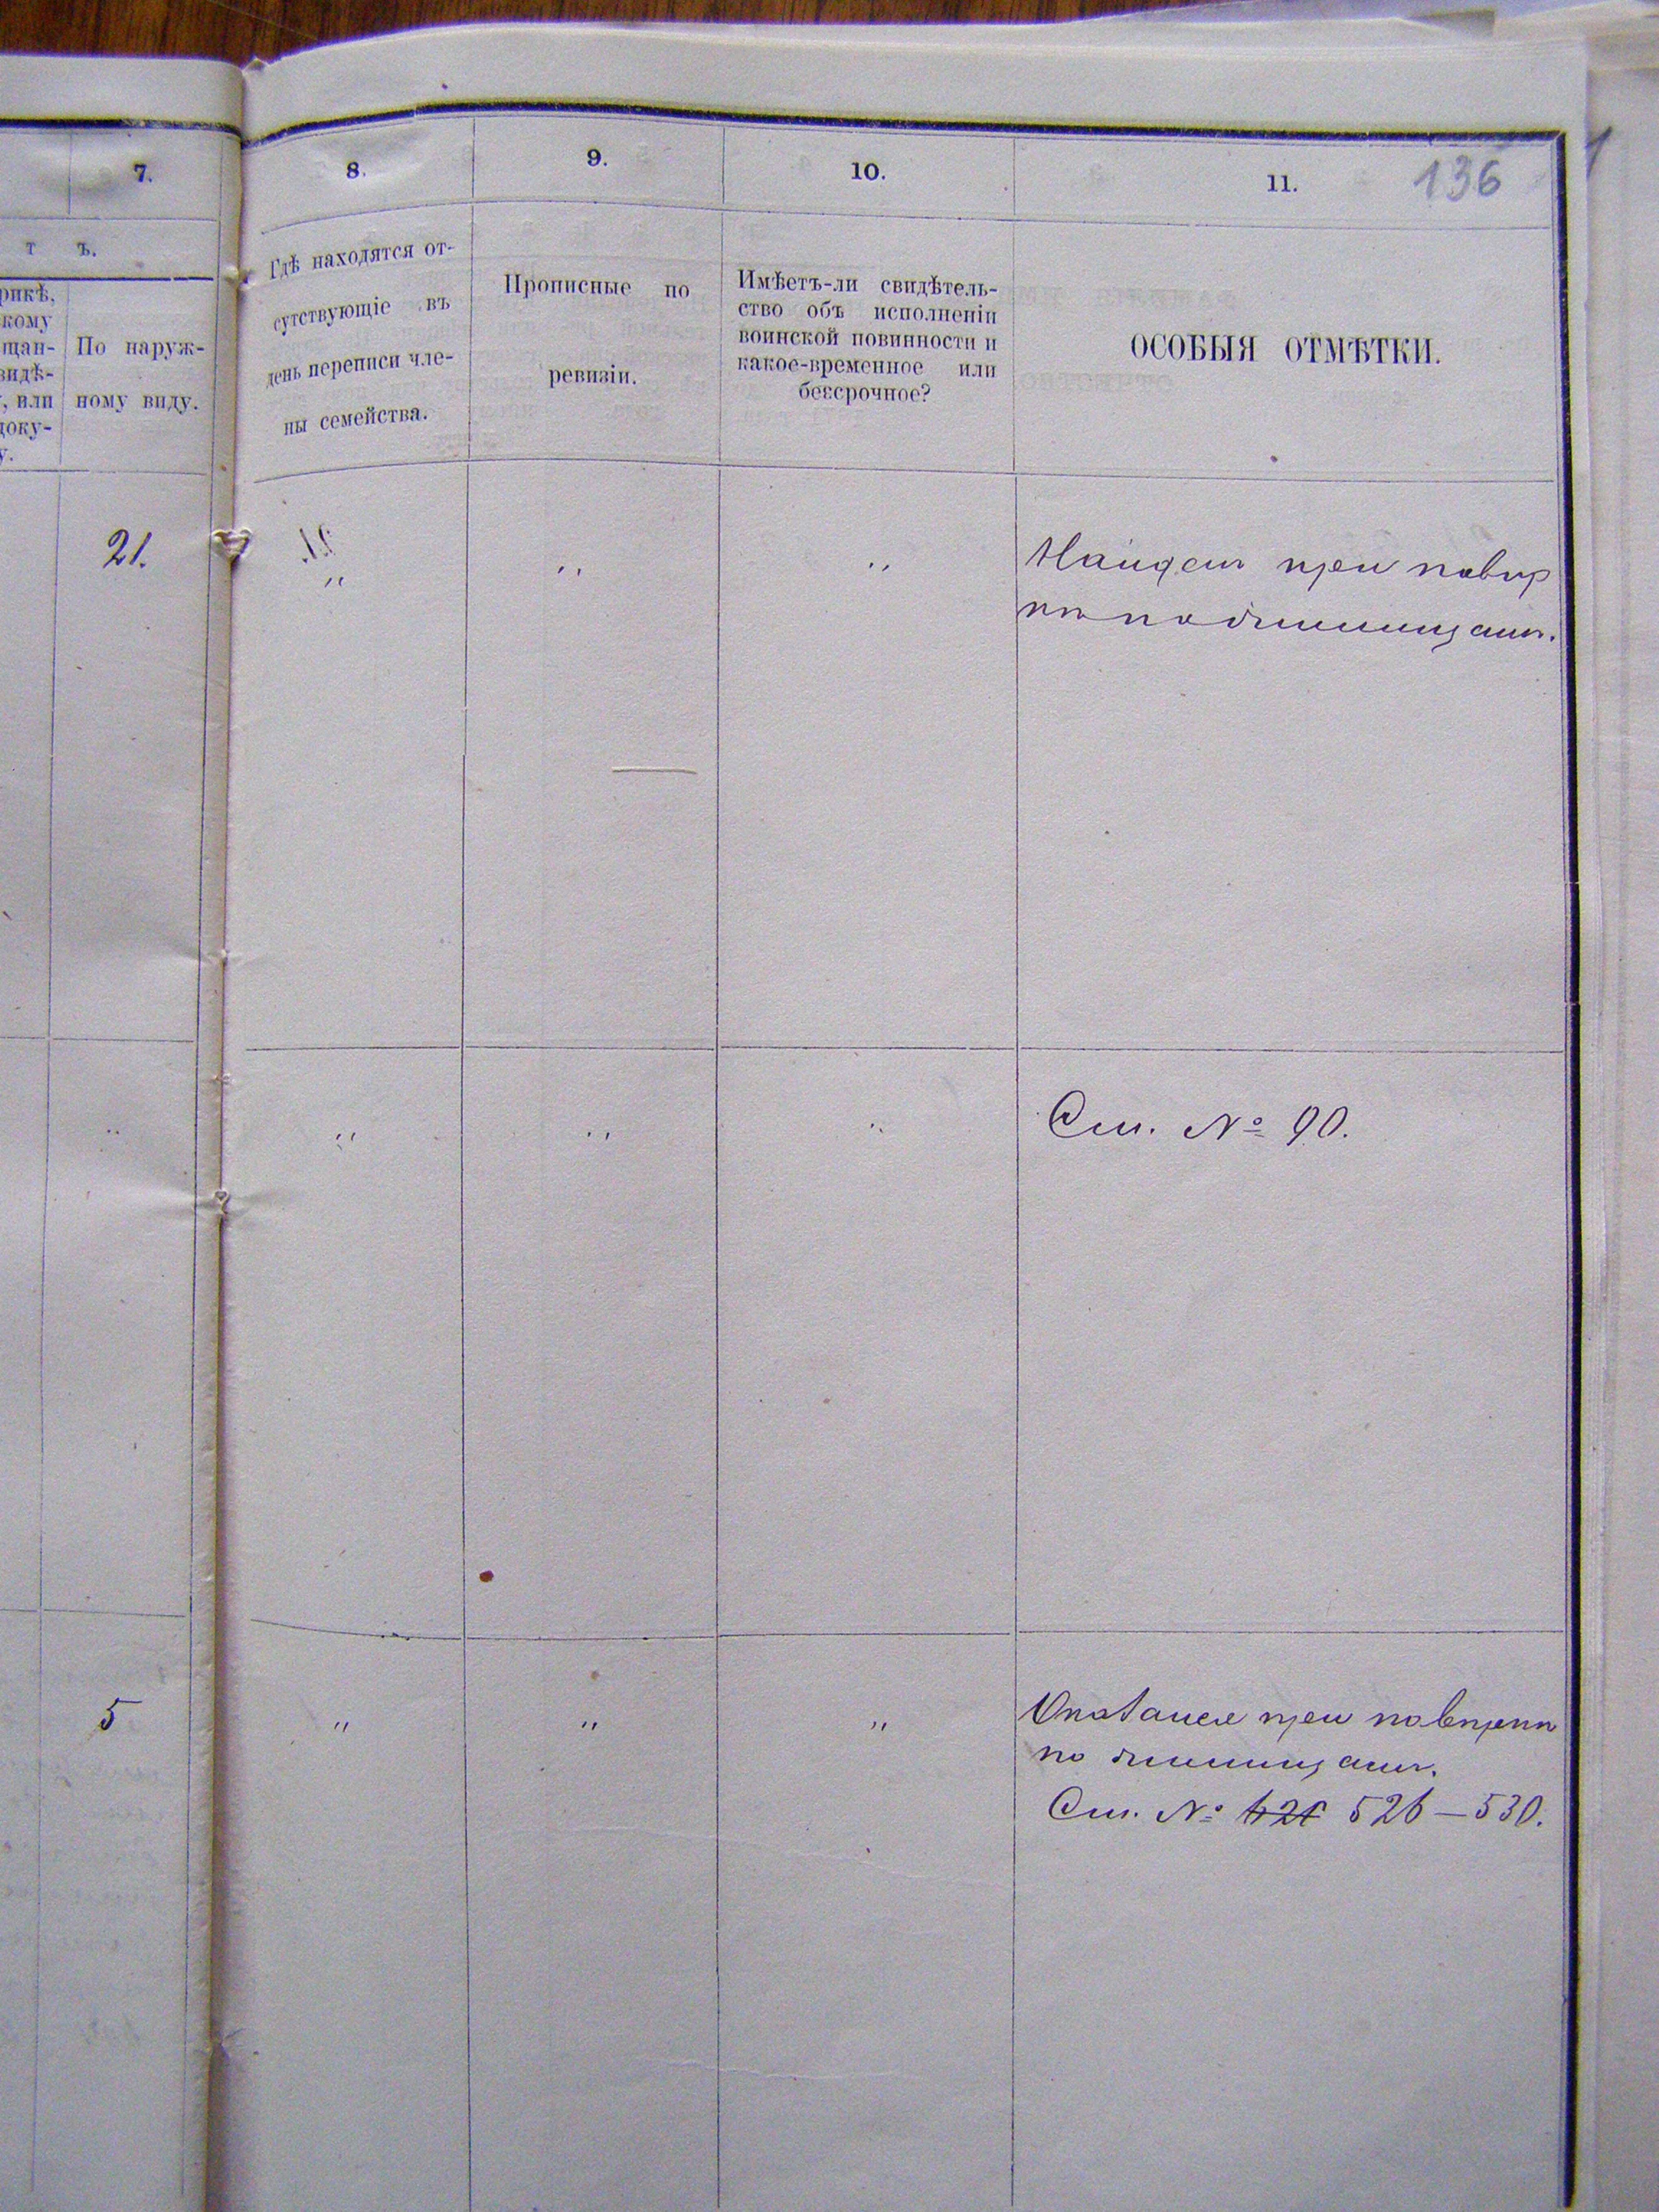 7.
8.
9.
10.
11.
136
т ъ.
рикѣ,
кому
щан-
видѣ-
, или
доку-
у.
По наруж-
ному виду.
Гдѣ находятся от-
сутствующіе въ
день переписи чле-
ны семейства.
Прописные по
ревизіи.
Имѣетъ-ли свидѣтель-
ство объ исполненіи
воинской повинности и
какое-временное или
безсрочное?
ОСОБЫЯ ОТМѢТКИ.
21.
"
"
"
Найденъ при повѣр
кѣ по
"
"
"
"
См. № 90.
5
"
"
"
Оказался при повѣркѣ
по
См. № 526—530.